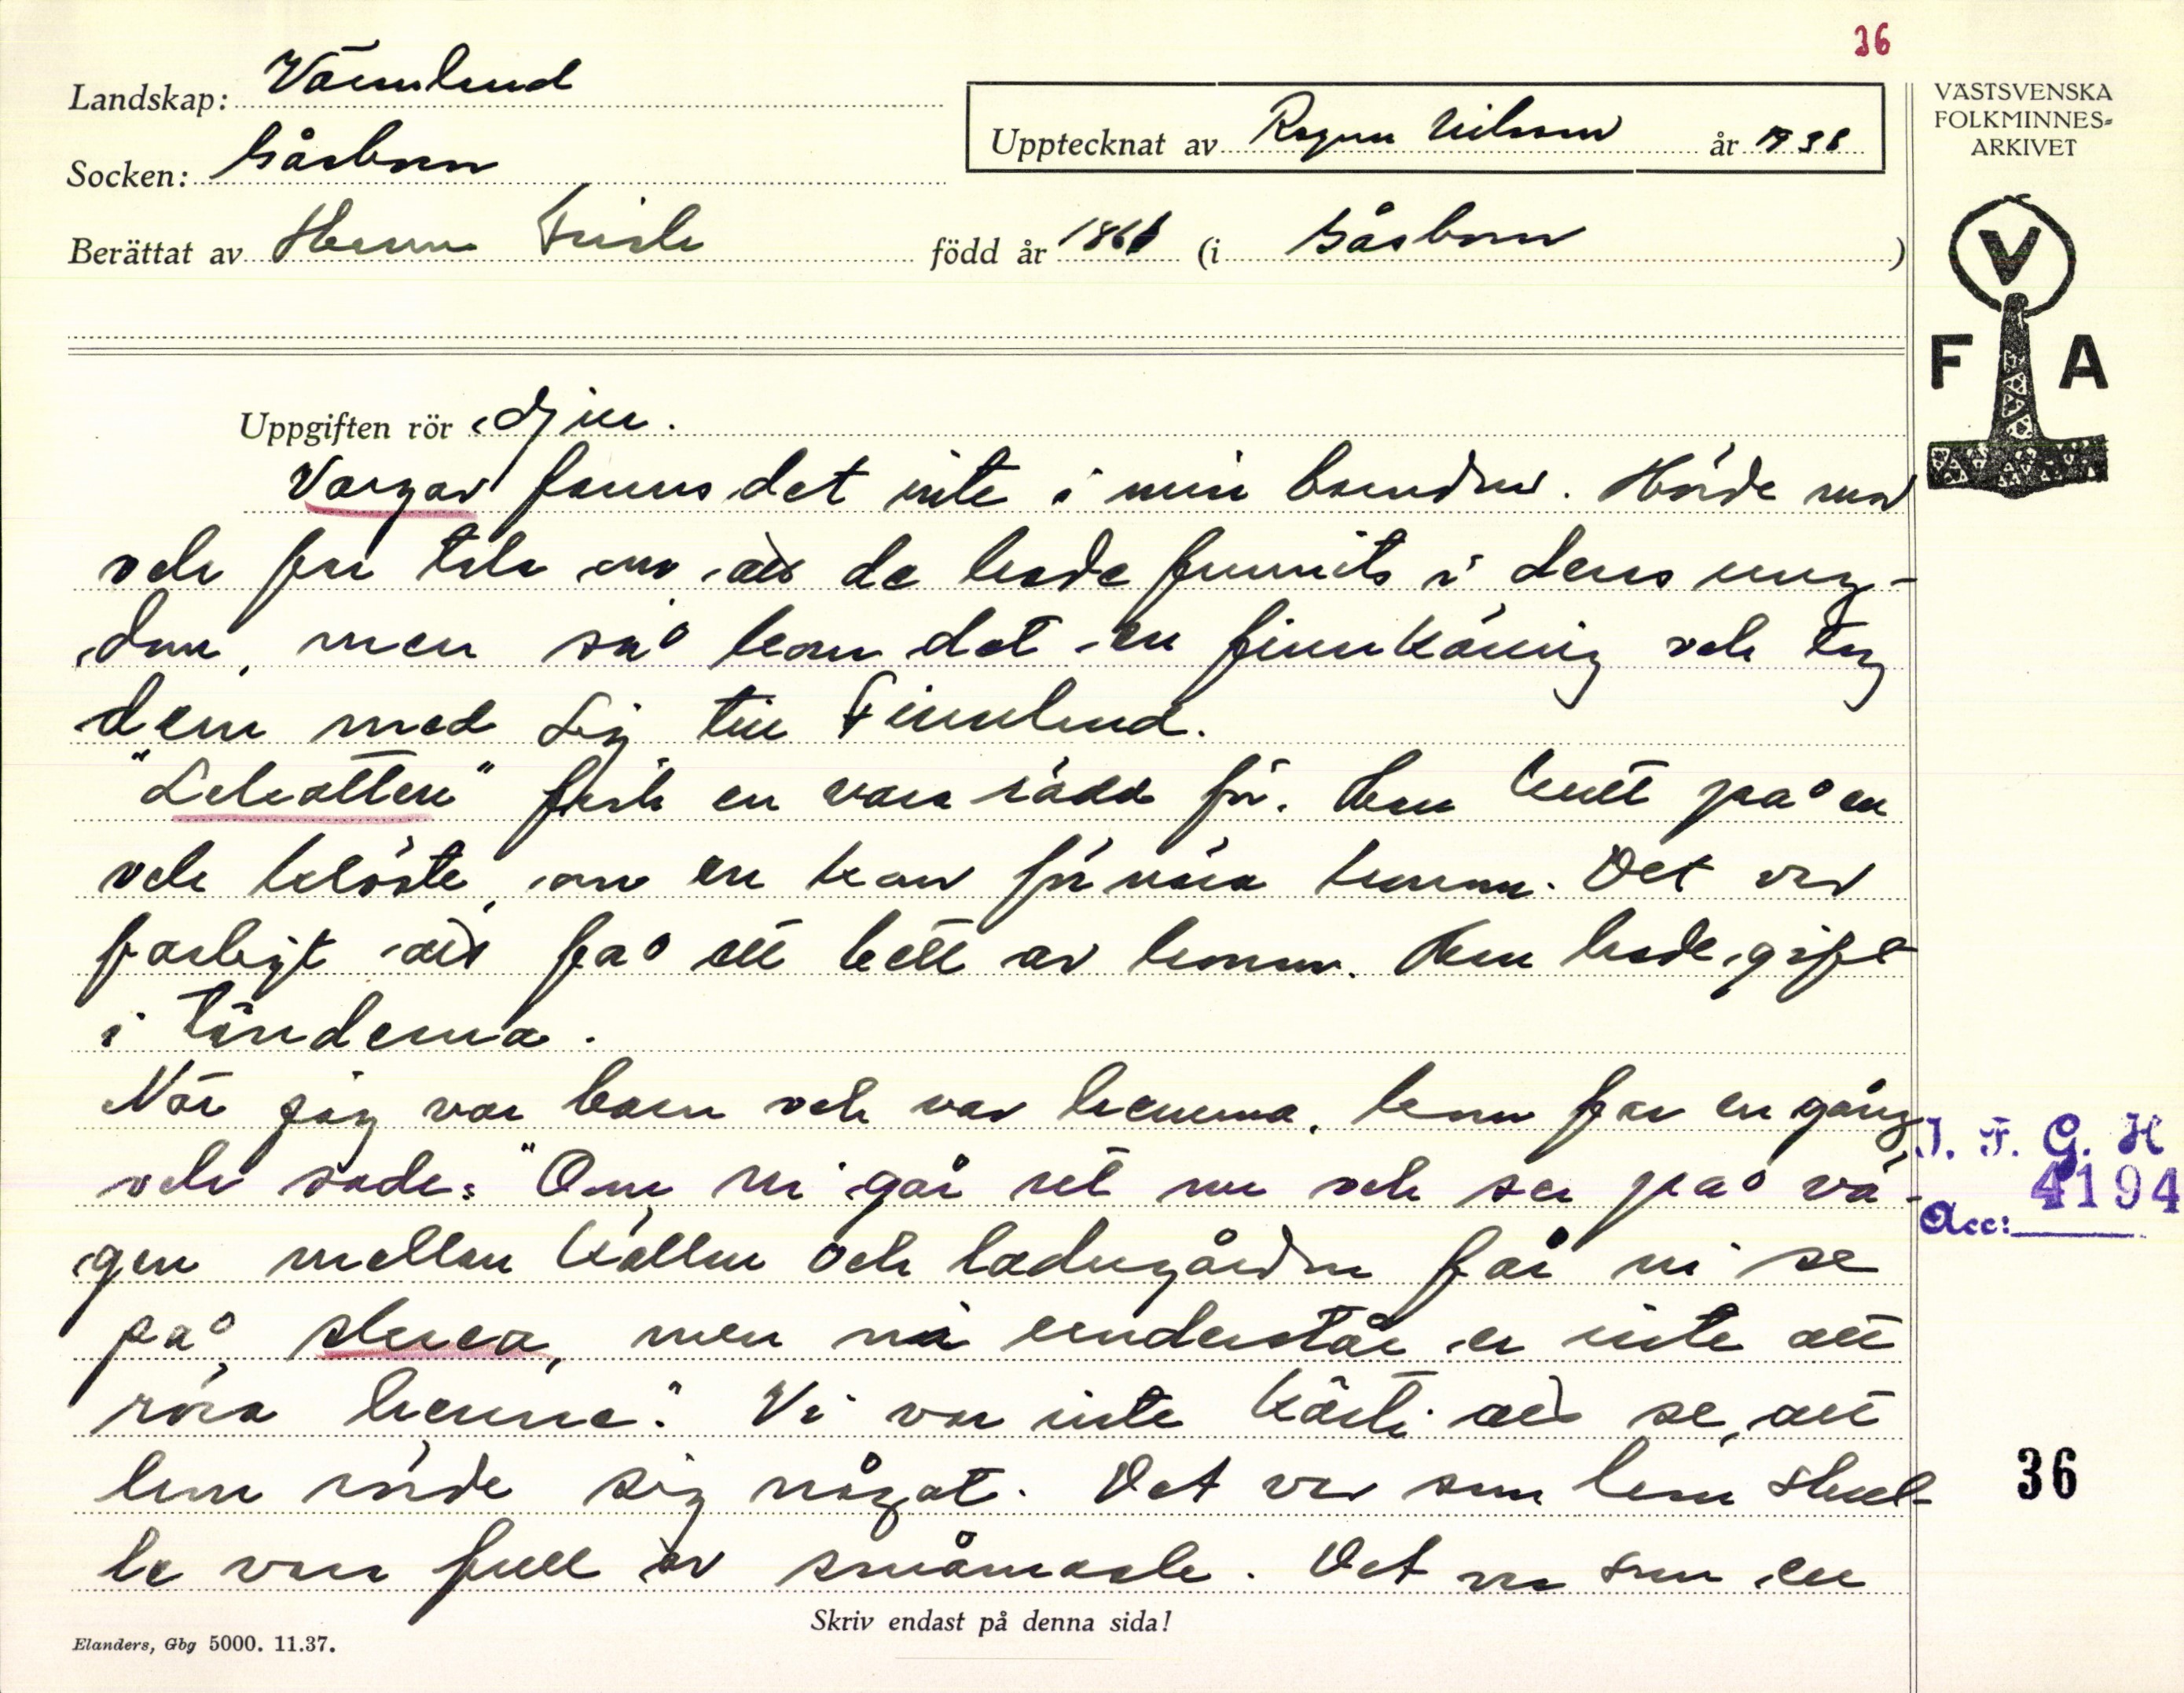 36
Landskap: Värmland
Socken: Gåsborn
Upptecknat av Ragnar Nilsson år 1938
VÄSTSVENSKA
FOLKMINNES-
ARKIVET
Berättat av Herman Frisk född år 1861 (i Gåsborn)
V
F A
Uppgiften rör djur.
Vargar fanns det inte i min barndom. Hörde mor
och far tala om att de hade funnits i deras ung-
dom, men så kom det en finnkäring och tog
dem med sig till Finnland.
"Lekatten" fick en vara rädd för. Han bett på en
och blåste, om en kom för nära honom. Det var
farligt att få ett bett av honom. Han hade gift
i tänderna.
När jag var barn och var hemma, kom far en gång
och sade: "Om ni går ut nu och ser på vä-
gen mellan källan och ladugården får ni se
på, men ni understår er inte att
röra henne." Vi var inte att se, att
hon rörde sig något. Det var som hon skul-
le vara full av småmask. Det var som en
J. F. G. H
4194
Acc:
36
Skriv endast på denna sida!
Elanders, Gbg 5000. 11.37.